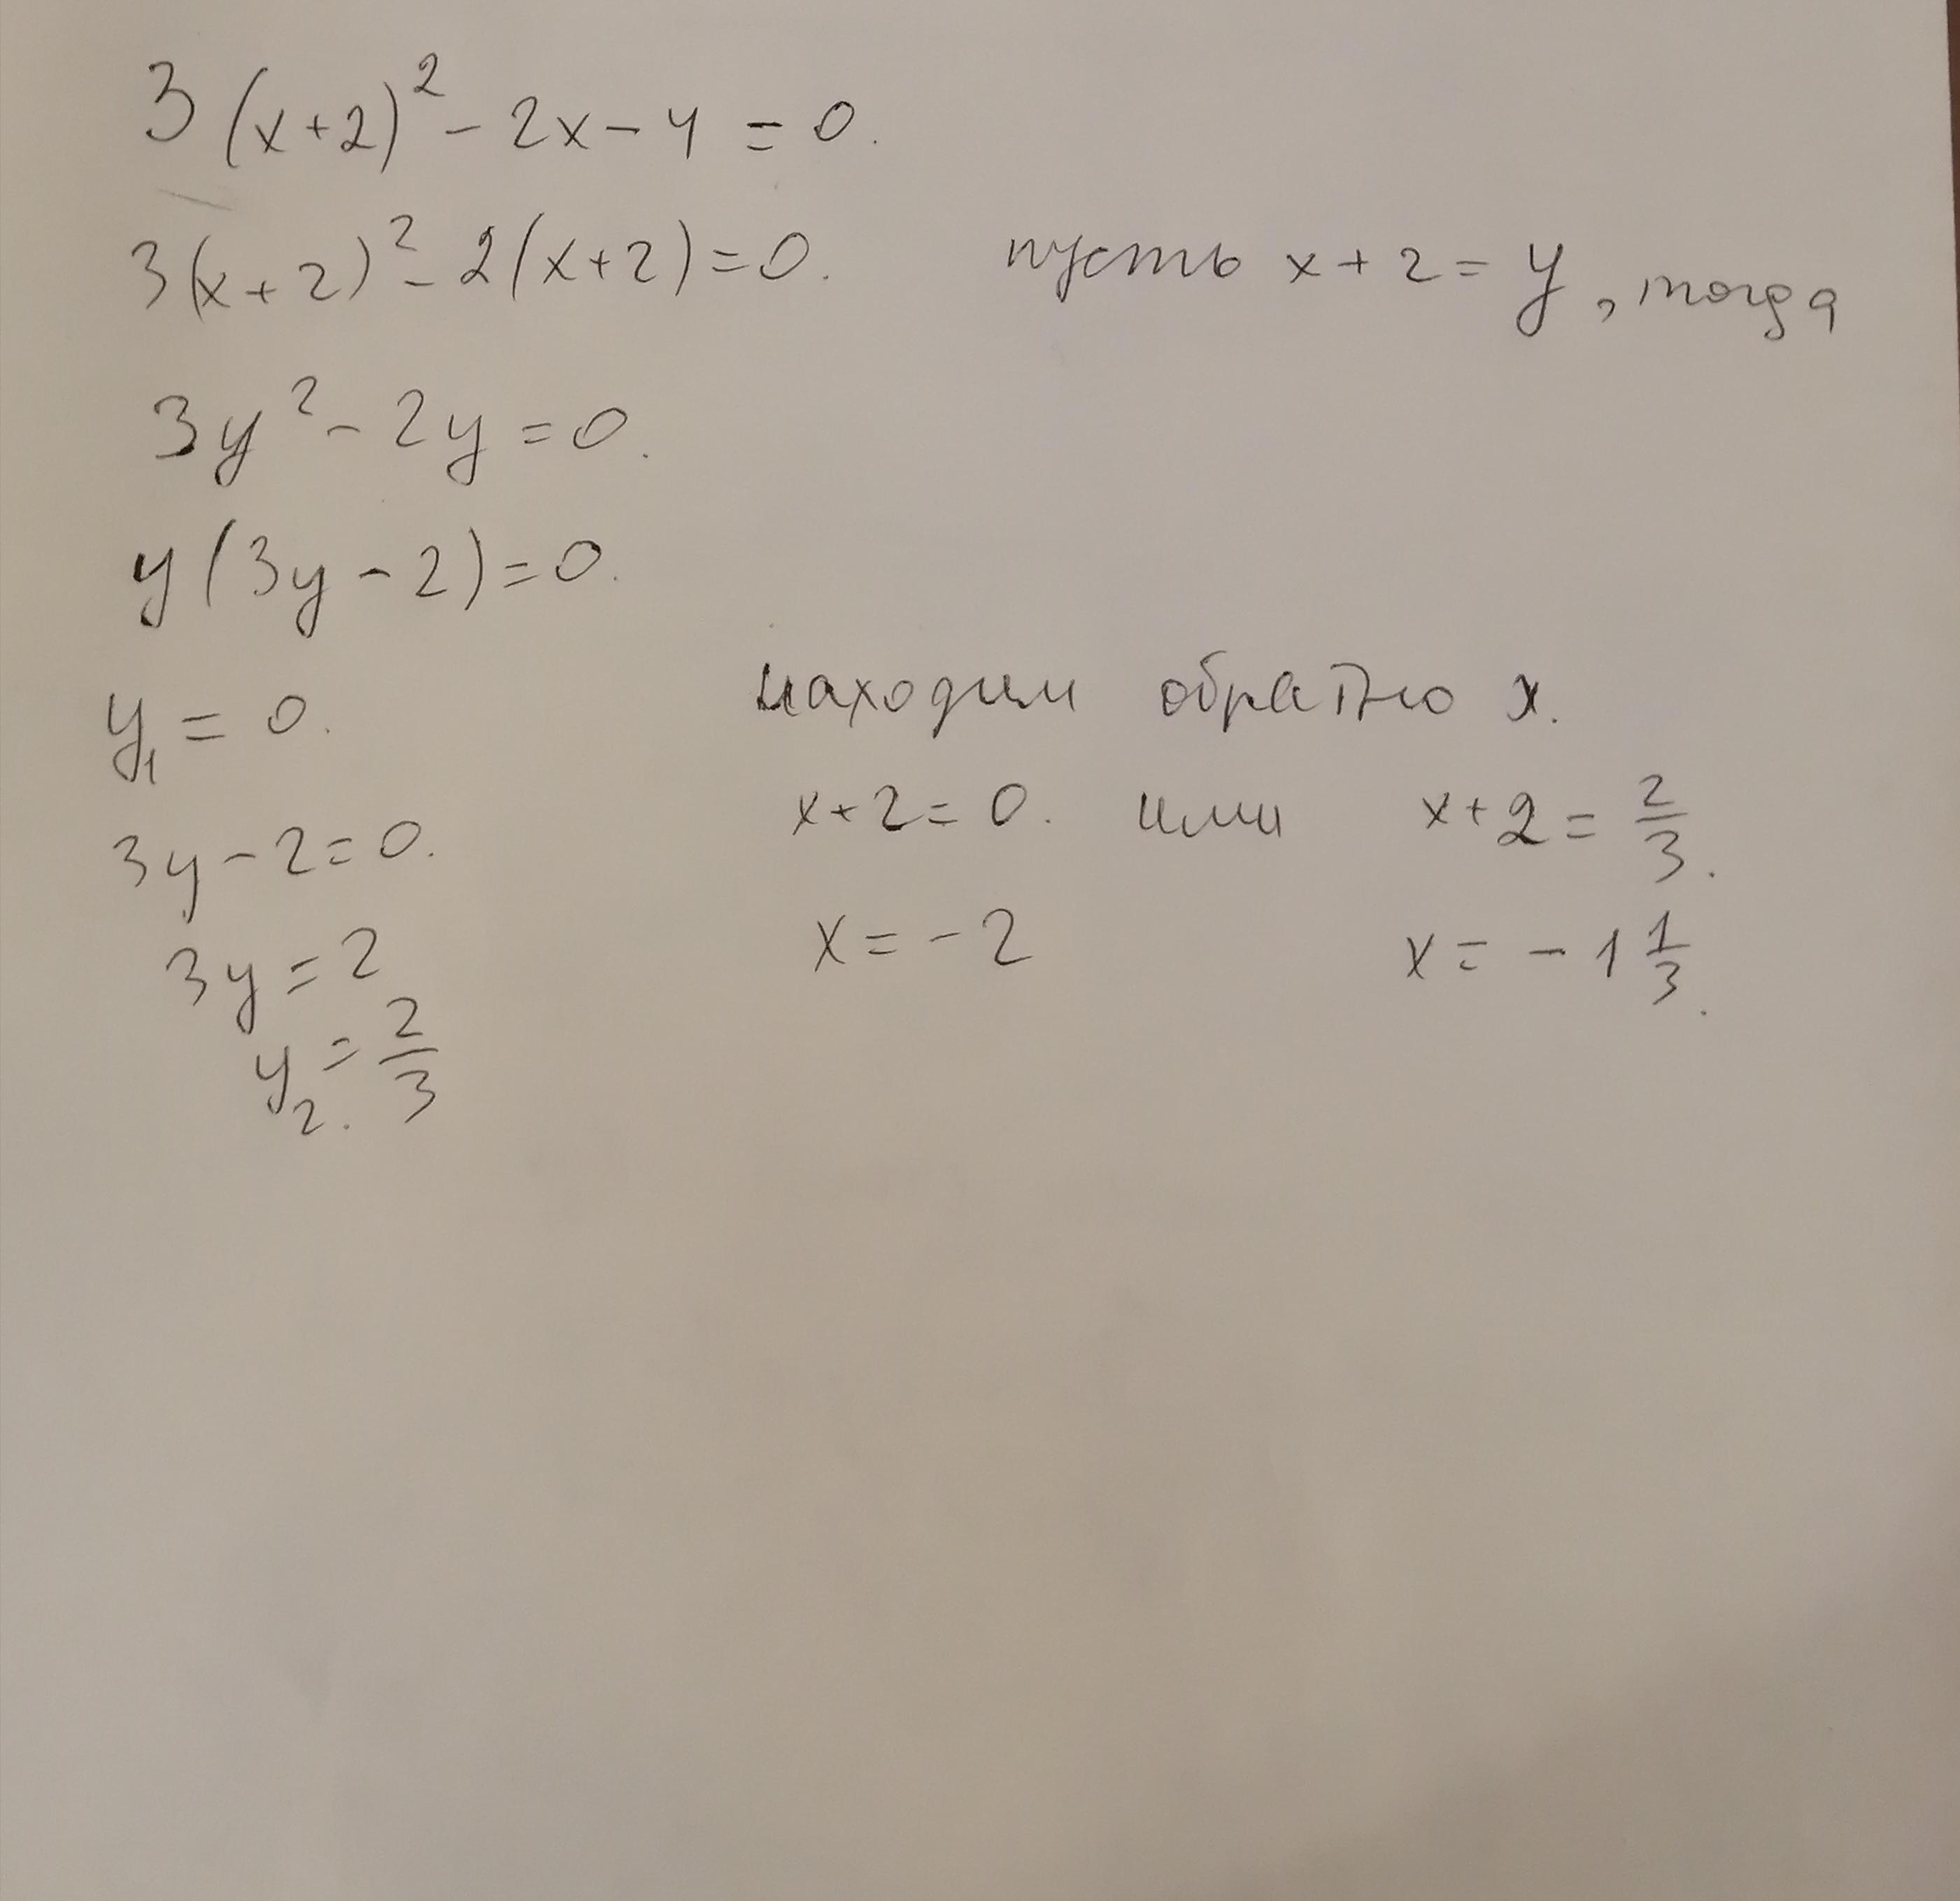 3(x+2)² - 2x - 4 = 0.
3(x+2)² - 2(x+2) = 0. пусть x + 2 = y, тогда
3y² - 2y = 0.
y(3y - 2) = 0.
y₁ = 0.
находим обратно x.
3y - 2 = 0.
x + 2 = 0. или x + 2 = 2/3.
3y = 2
x = -2 x = -1 1/3.
y₂. = 2/3